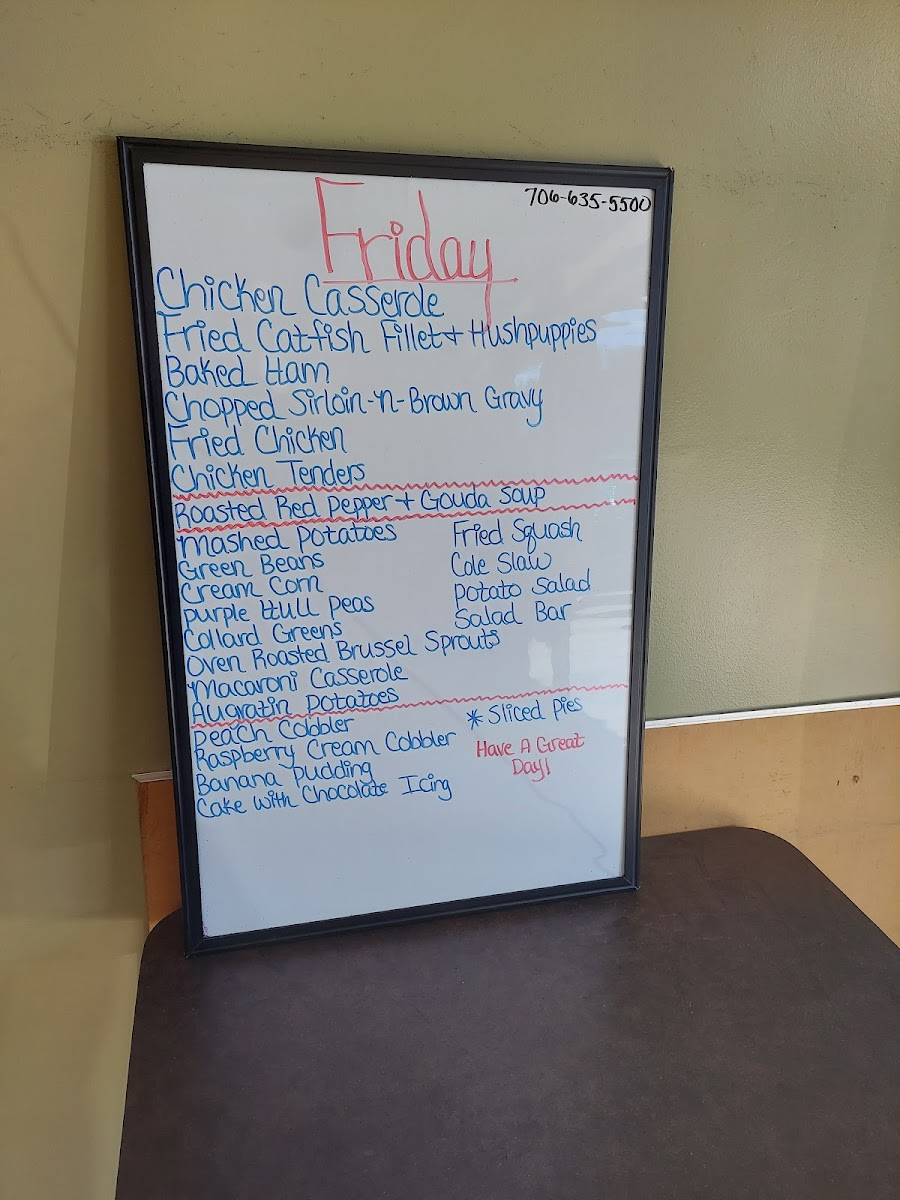 706-635-5500
Friday
Chicken Casserole
Fried Catfish Fillet + Hushpuppies
Baked Ham
Chopped Sirloin-n-Brown Gravy
Fried Chicken
Chicken Tenders
Roasted Red Pepper + Gouda Soup
Mashed Potatoes
Green Beans
Cream Corn
Purple Hull Peas
Collard Greens
Oven Roasted Brussel Sprouts
Macaroni Casserole
Augratin Potatoes
Fried Squash
Cole Slaw
Potato Salad
Salad Bar
Peach Cobbler
Raspberry Cream Cobbler
Banana Pudding
Cake with Chocolate Icing
* Sliced Pies
Have A Great
Day!